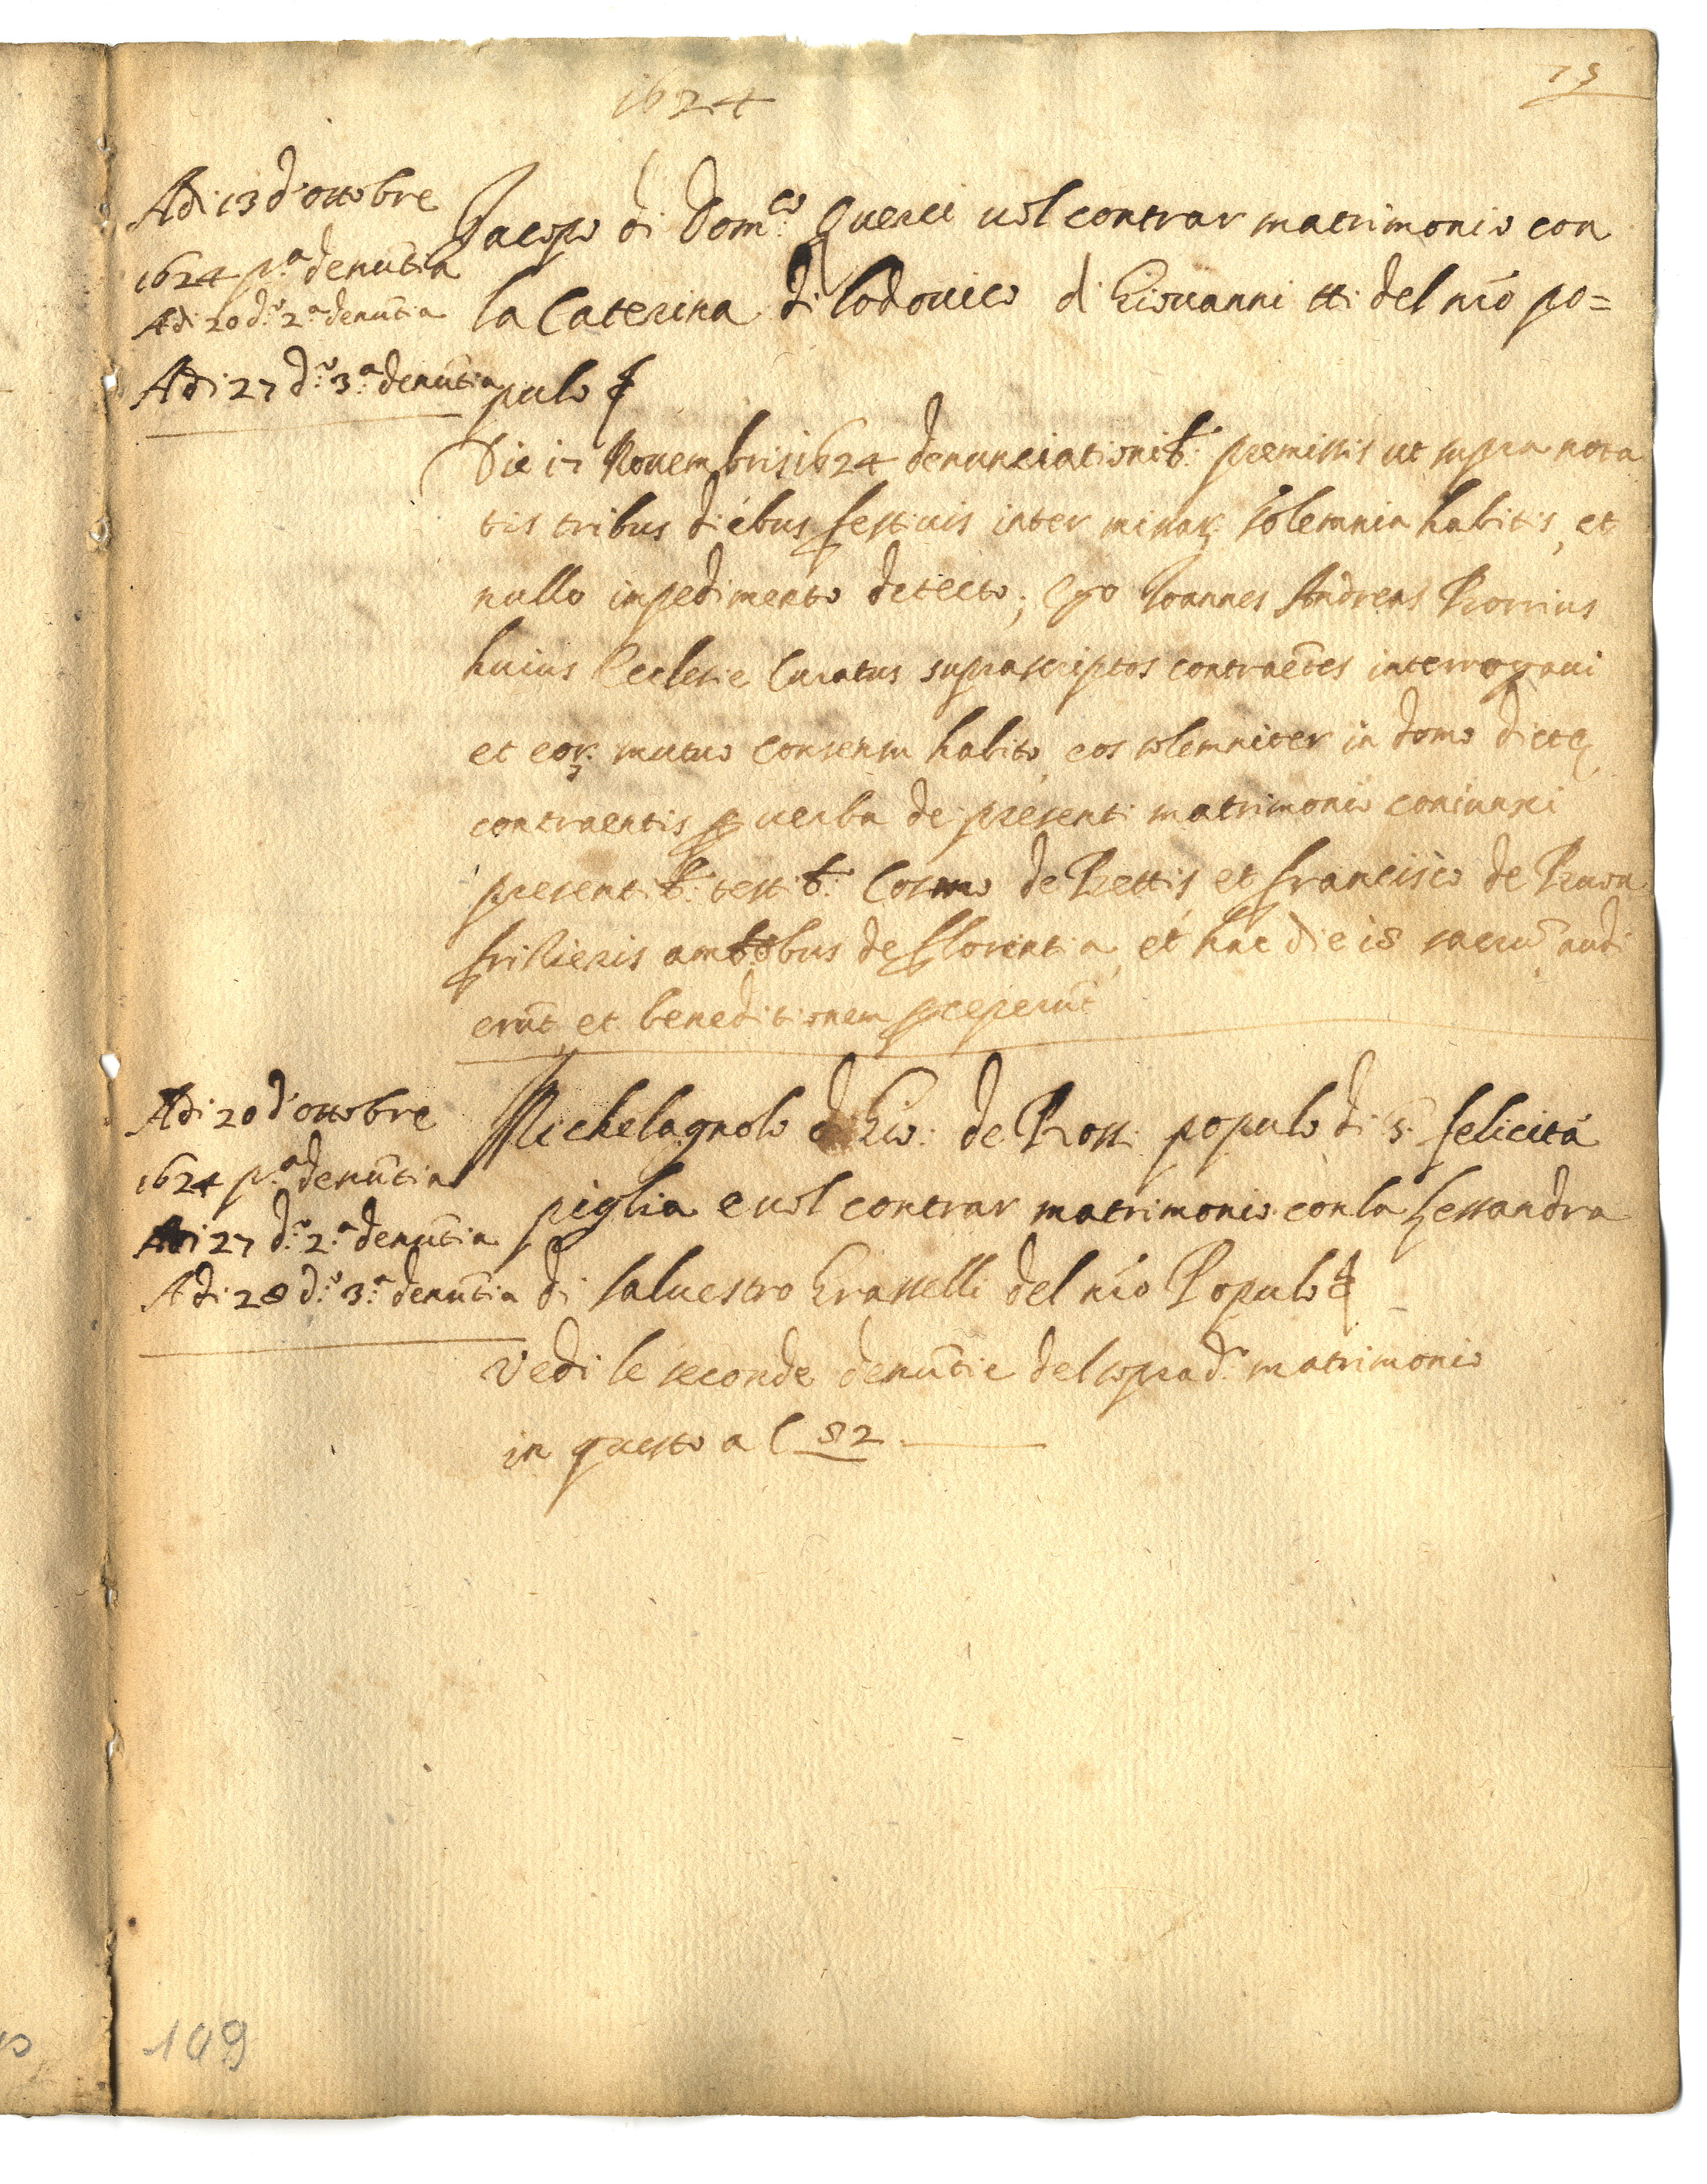 1624
75
Adi 13 d'ottobre
1624 p.a denũtia
Adi 20 d.o 2.a denũtia
Adi 27 d.o 3.a denũtia
Jacopo di Dom.co Querci uol contrar matrimonio con
la Caterina di Lodouico di Giouanni tti del nrõ po=
pulo
Die 17 Nouembris 1624 denunciationib: premissis ut supra nota
tis tribus diebus festiuis inter missar. solemnia habitis, et
nullo impedimento detecto; Ego Joannes Andreas
huius Ecclesie Curatus suprascriptos contraẽtes interrogaui
et eor. mutuo consensu habito eos solemniter in domo dicte
contraentis p uerba de presenti matrimonio coniunxi
presentib: testib: Cosmo de Bettis et Francisco de
ambobus de Florentia, et hac die 18 sacrũ audi
erũt et beneditionem preceperũt
Adi 20 d'ottobre
1624 p.a denũtia
Adi 27 d.o 2.a denũtia
Adi 28 d.o 3.a denũtia
Michelagnolo di Gio: de Rossi populo di S. felicita
piglia e uol contrar matrimonio con la Lessandra
di saluestro Grasselli del nrõ Populo
Vedi le seconde denũtie del soprad.o matrimonio
in questo a C 82
109